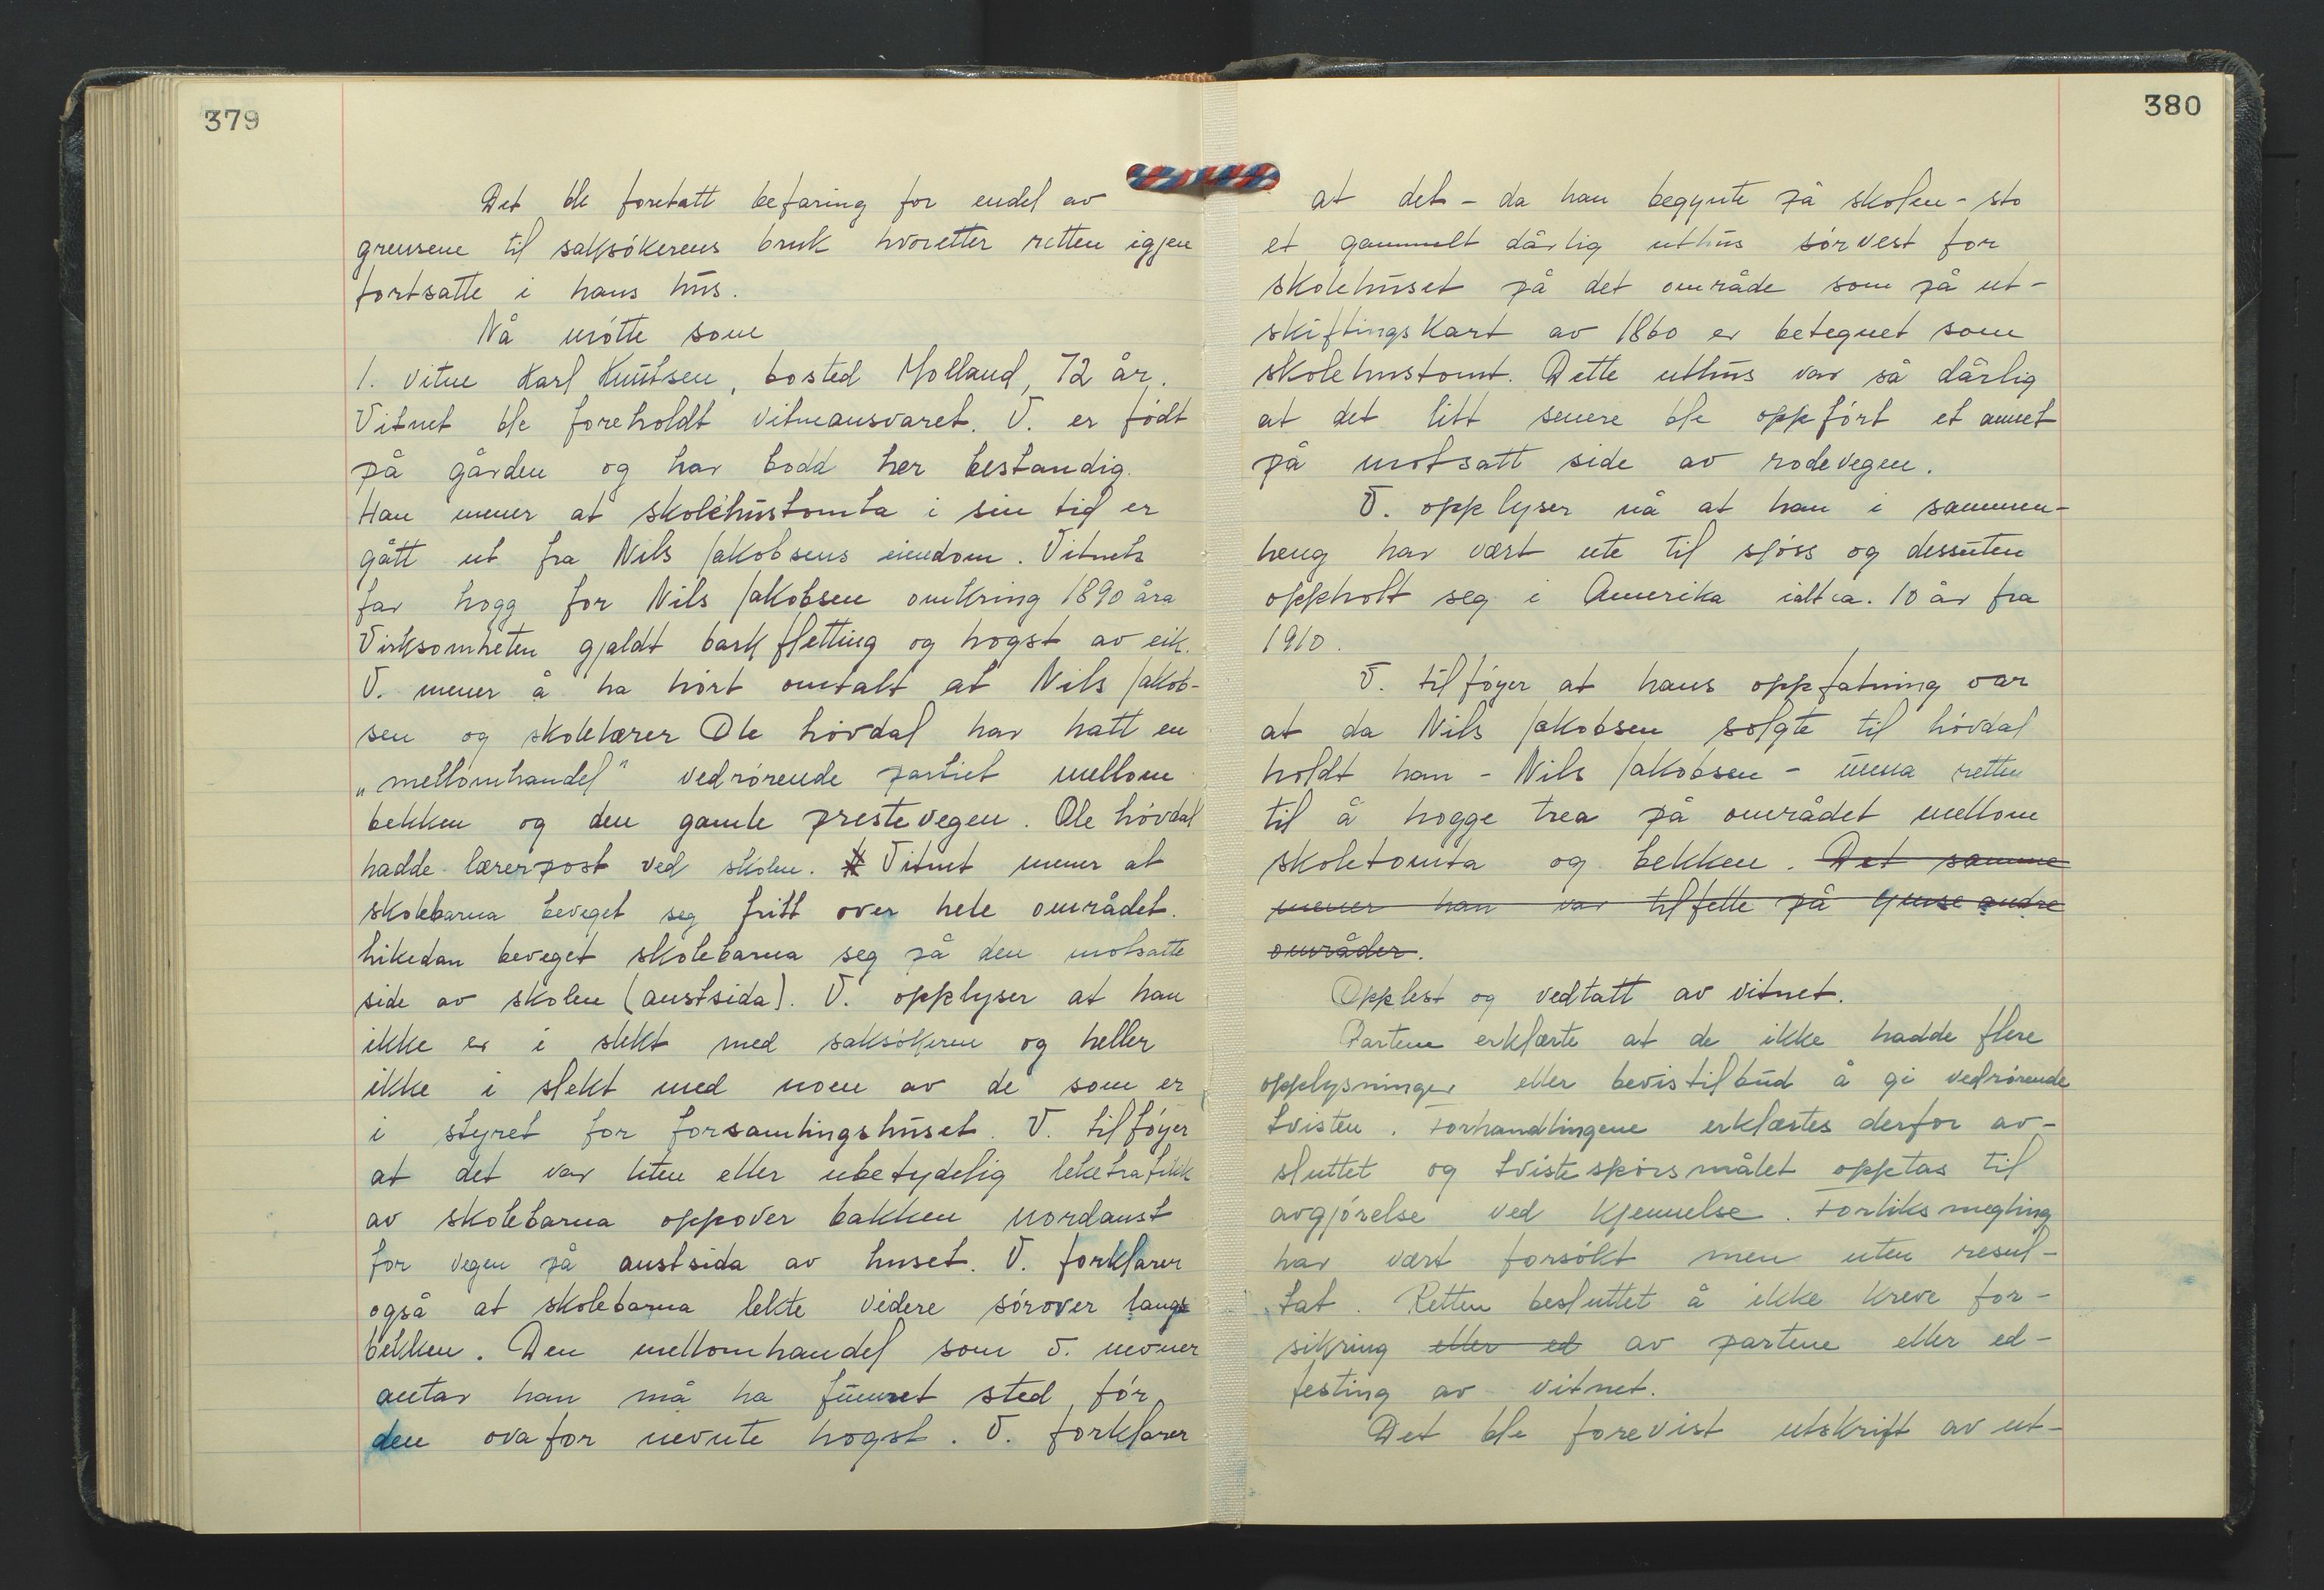 379
Det ble foretatt befaring for endel av
grensene til saksökerens bruk hvoretter retten igjen
fortsatte i hans hus.
Nå mötte som
1. vitne Karl Knutsen, bosted Molland, 72 år.
Vitnet ble foreholdt vitneansvaret. V. er födt
på gården og har bodd her bestandig.
Han mener at skolehustomta i sin tid er
gått ut fra Nils Jakobsens eiendom. Vitnets
far hogg for Nils Jakobsen omkring 1890 åra
Virksomheten gjaldt barkfletting og hogst av eik.
V. mener å ha hört omtalt at Nils Jakob-
sen og skolelærer Ole Lövdal har hatt en
„mellomhandel" vedrörende partiet mellom
bekken og den gamle prestevegen. Ole Lövdal
hadde lærerpost ved skolen. Vitnet mener at
skolebarna beveget seg fritt over hele området.
Likedan beveget skolebarna seg på den motsatte
side av skolen (austsida). V. opplyser at han
ikke er i slekt med saksökeren og heller
ikke i slekt med noen av de som er
i styret for forsamlingshuset. V. tilföyer
at det var liten eller ubetydelig leketrafikk
av skolebarna oppover bakken nordaust
for vegen på austsida av huset. V. forklarer
også at skolebarna lekte videre söröver langs
bekken. Den mellomhandel som v. nevner
antar han må ha funnet sted för
den ovafor nevnte hogst. V. forklarer
380
at det - da han begynte på skolen - sto
et gammelt dårlig uthus sörvest for
skolehuset på det område som på ut-
skiftingskart av 1860 er betegnet som
skolehustomt. Dette uthus var så dårlig
at det litt senere ble oppfört et annet
på motsatt side av rodevegen.
V. opplyser nå at han i sammen-
heng har vært ute til sjöss og dessuten
oppholt seg i Amerika ialt ca. 10 år fra
1910.
V. tilföyer at hans oppfatning var
at da Nils Jakobsen solgte til Lövdal
holdt han - Nils Jakobsen - unna retten
til å hogge trea på området mellom
skoletomta og bekken. Det samme
mener han var tilfelle på grense andre
områder.
Opplest og vedtatt av vitnet.
Partene erklærte at de ikke hadde flere
opplysninger eller bevistilbud å gi vedrörende
tvisten. Forhandlingene erklærtes derfor av-
sluttet og tvistespörsmålet opptas til
avgjörelse ved kjennelse. Forliksmegling
har vært forsökt men uten resul-
tat. Retten besluttet å ikke kreve for-
sikring eller ed av partene eller ed-
festing av vitnet.
Det ble forevist utskrift av ut-